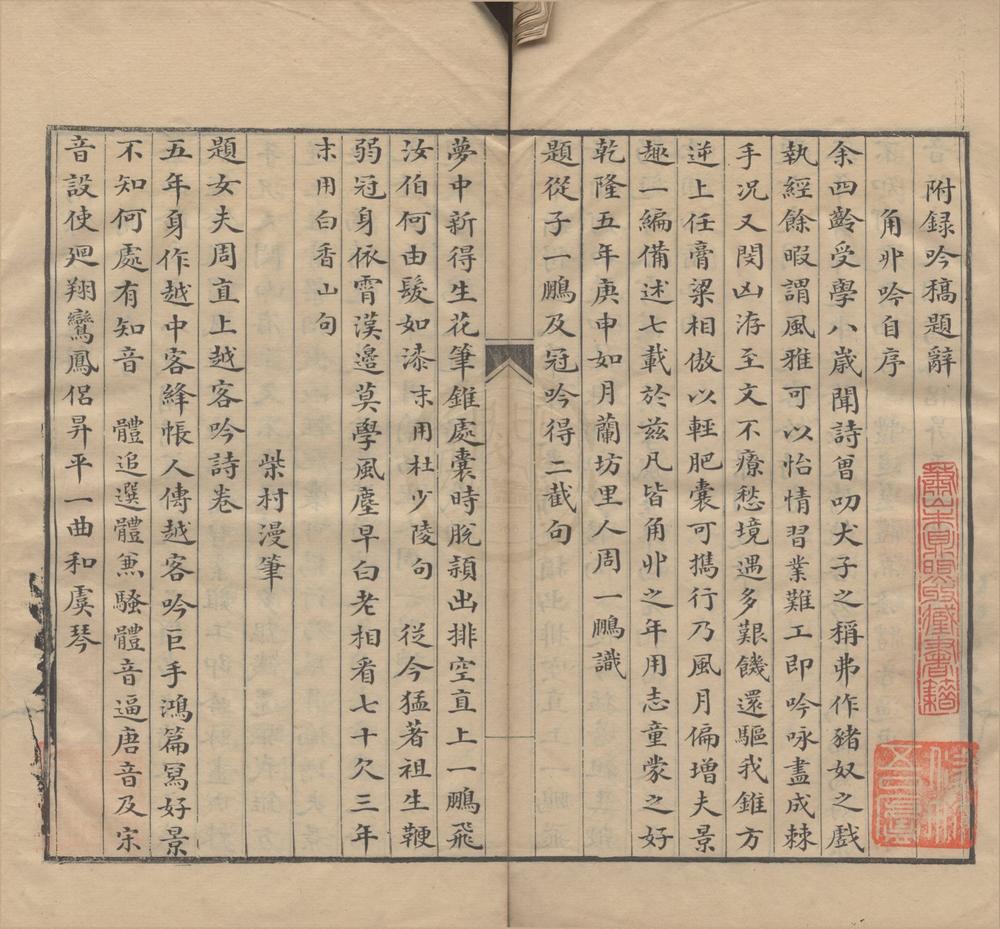 附録吟稿題辭
角丱吟自序
余四齡受學八歲聞詩曾叨犬子之稱弗作豬奴之戲
執經餘暇謂風雅可以怡情習業難工即吟咏盡成棘
手况又閔凶洊至文不療愁境遇多艱饑還驅我錐方
逆上任膏粱相傲以輕肥囊可攜行乃風月偏增夫景
趣一編備述七載於兹凡皆角丱之年用志童蒙之好
乾隆五年庚申如月蘭坊里人周一鵬識
題從子一鵬及冠吟得二截句
夢中新得生花筆錐處囊時脫穎出排空直上一鵬飛
汝伯何由髮如漆末用杜少陵句 從今猛著祖生鞭
弱冠身依霄漢邊莫學風塵早白老相看七十欠三年
末用白香山句
柴村漫筆
題女夫周直上越客吟詩卷
五年身作越中客絳帳人傳越客吟巨手鴻篇冩好景
不知何處有知音 體追選體兼騷體音逼唐音及宋
音設使廻翔鸞鳳侶昇平一曲和虞琴
蕭山朱鼎煦收藏書籍